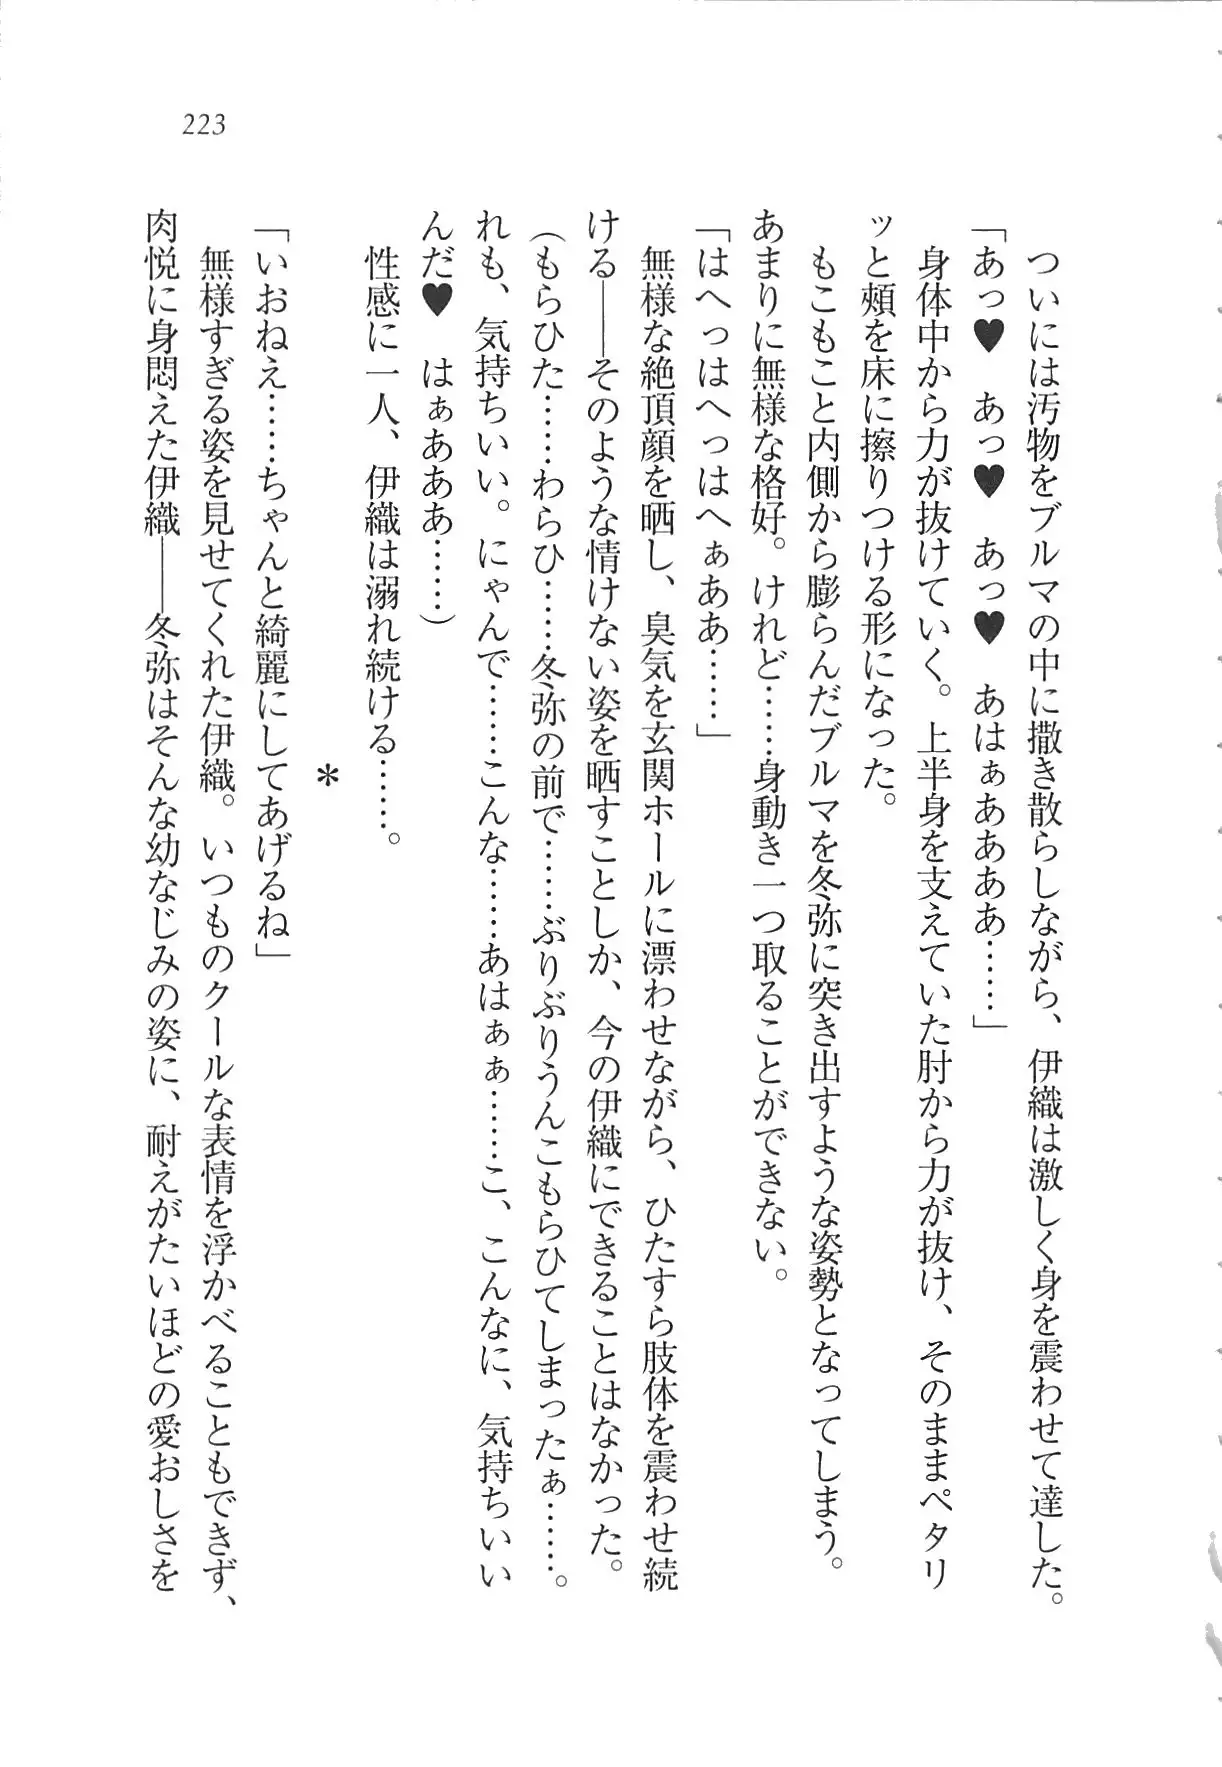 223
ついには汚物をブルマの中に撒き散らしながら、伊織は激しく身を震わせて達した。
「あっ♥　あっ♥　あっ♥　あはぁあああ……」
身体中から力が抜けていく。上半身を支えていた肘から力が抜け、そのままペタリ
ッと頰を床に擦りつける形になった。
もこもこと内側から膨らんだブルマを冬弥に突き出すような姿勢となってしまう。
あまりに無様な格好。けれど……身動き一つ取ることができない。
「はへっはへっはへぁああ……」
無様な絶頂顔を晒し、臭気を玄関ホールに漂わせながら、ひたすら肢体を震わせ続
ける――そのような情けない姿を晒すことしか、今の伊織にできることはなかった。
（もらひた……わらひ……冬弥の前で……ぶりぶりうんこもらひてしまったぁ……。
れも、気持ちいい。にゃんで……こんな……あはぁぁ……こ、こんなに、気持ちいい
んだ♥　はぁあああ……）
性感に一人、伊織は溺れ続ける……。
＊
「いおねえ……ちゃんと綺麗にしてあげるね」
無様すぎる姿を見せてくれた伊織。いつものクールな表情を浮かべることもできず、
肉悦に身悶えた伊織――冬弥はそんな幼なじみの姿に、耐えがたいほどの愛おしさを